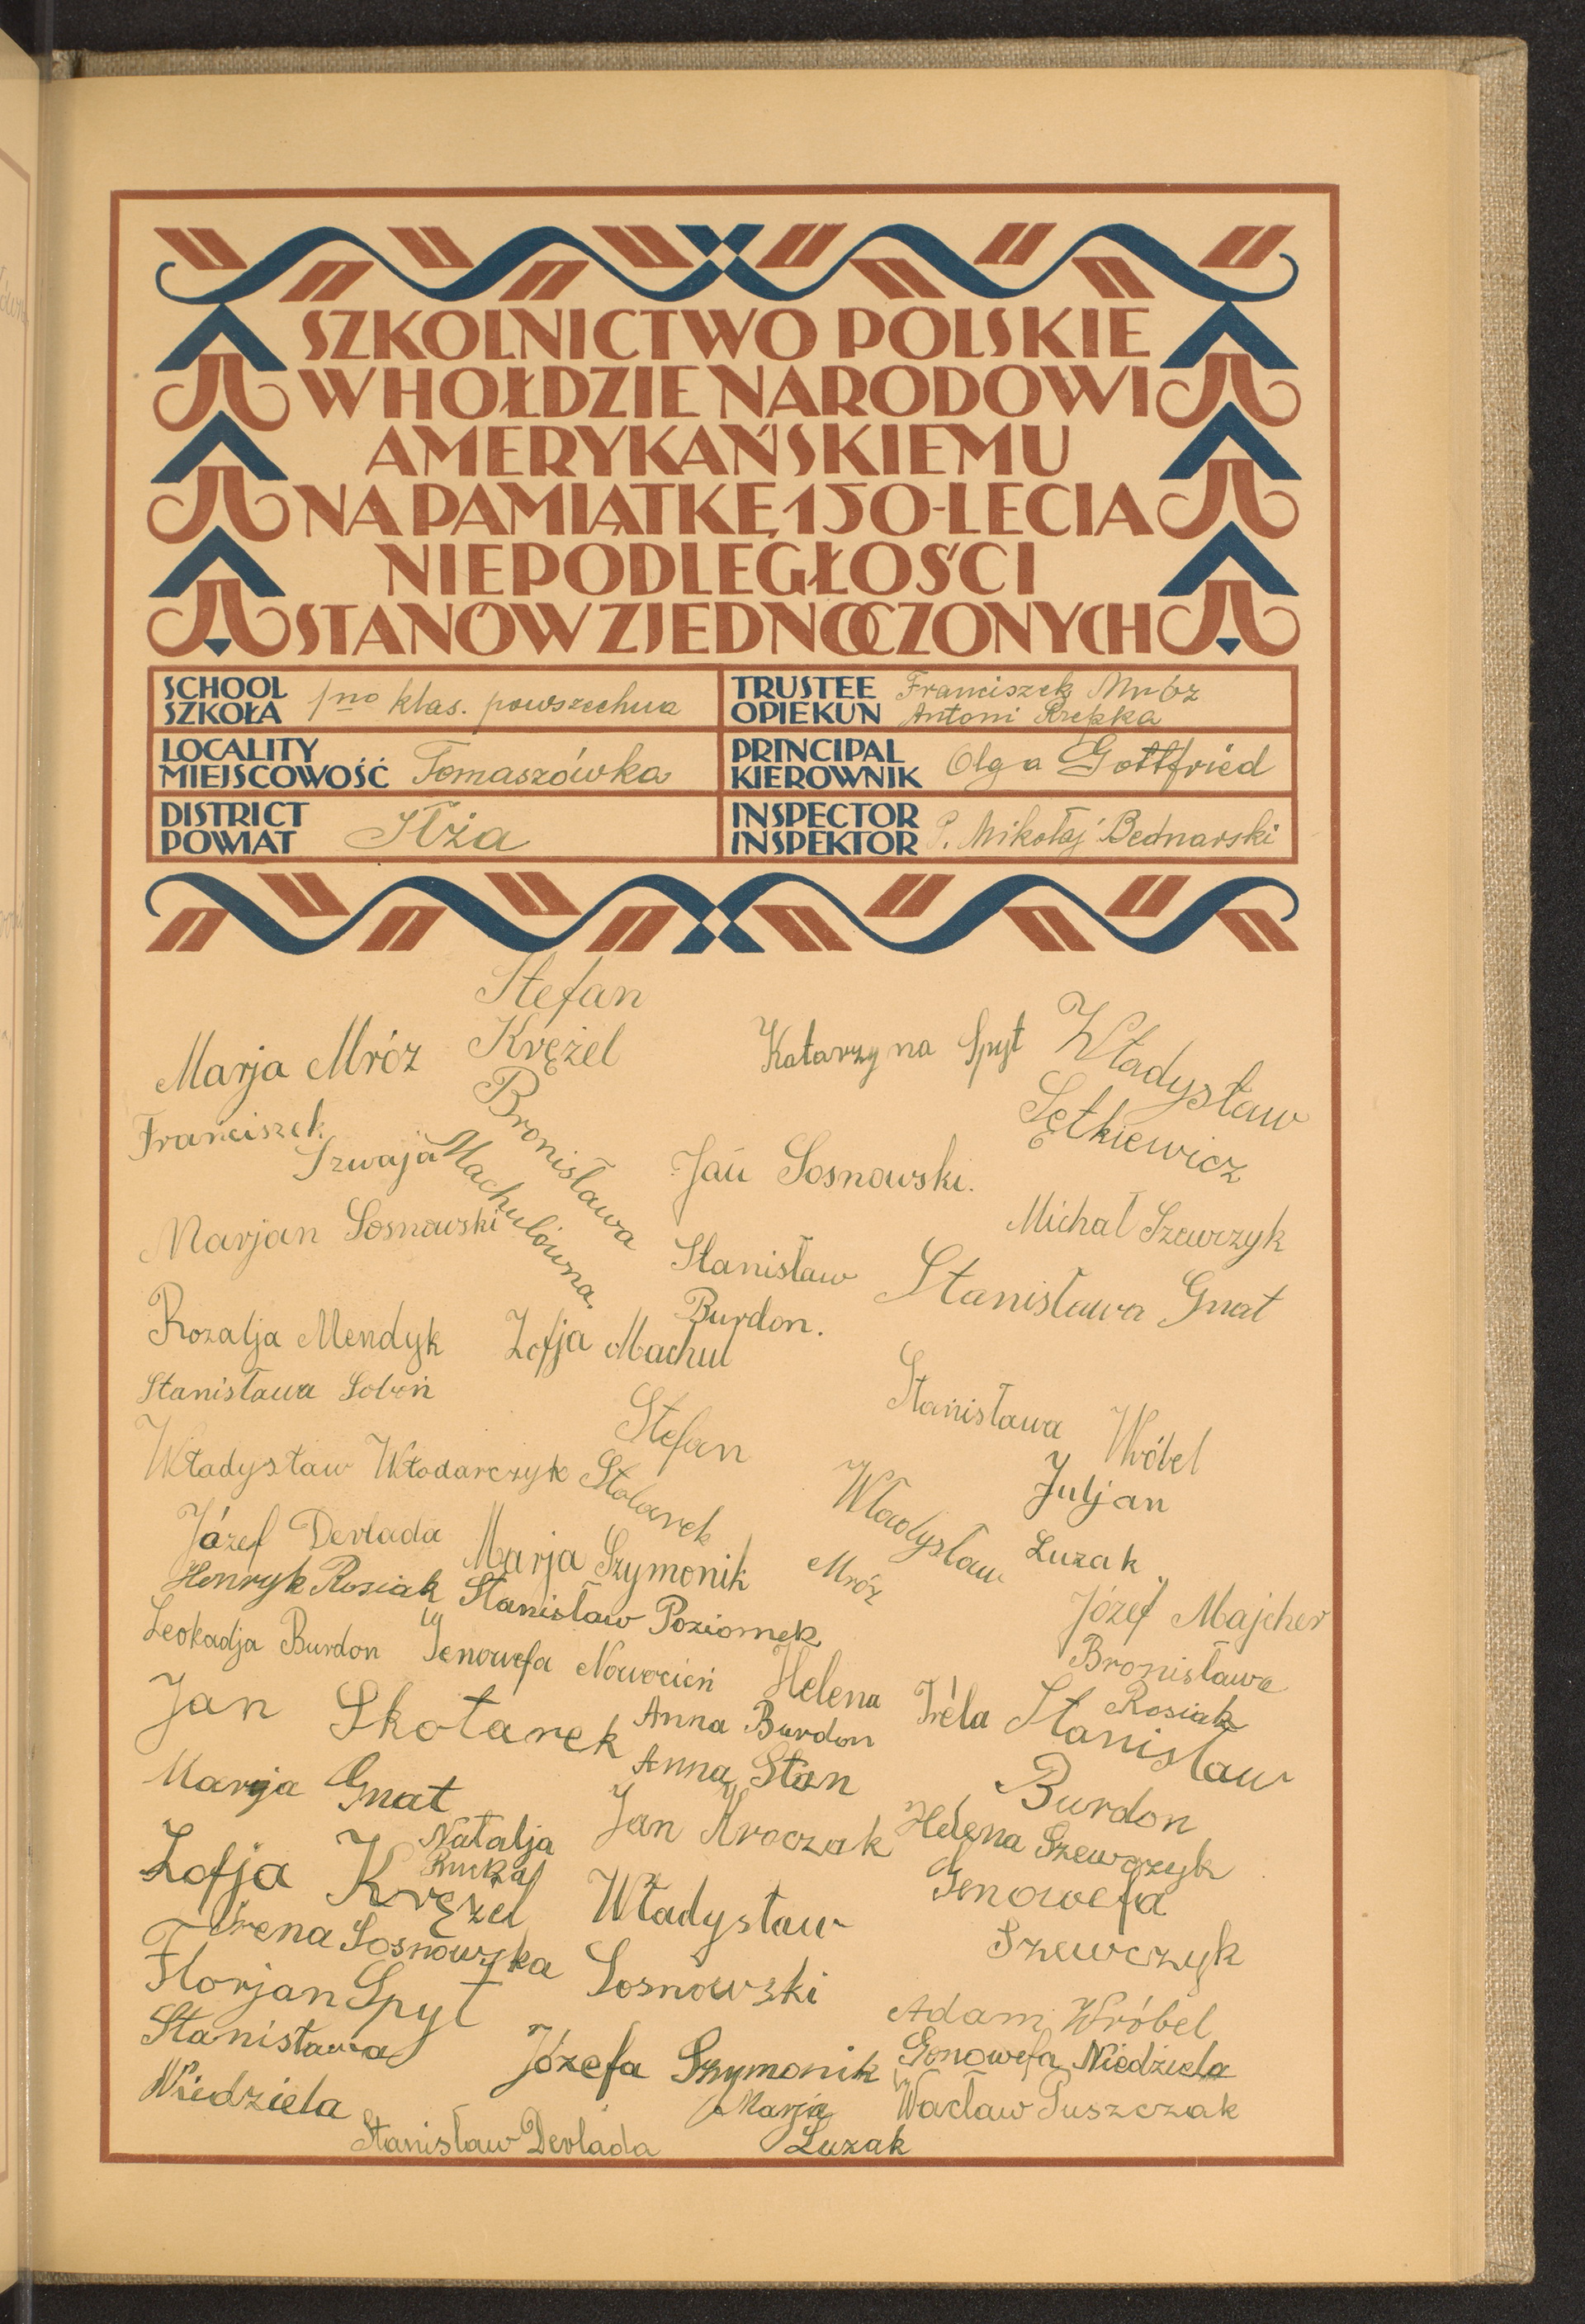 SZKOLNICTWO POLSKIE
W HOŁDZIE NARODOWI
AMERYKAŃSKIEMU
NA PAMIĄTKĘ 150-LECIA
NIEPODLEGŁOŚCI
STANÓW ZJEDNOCZONYCH
SCHOOL
SZKOŁA
1no klas. powszechna
TRUSTEE
OPIEKUN
Franciszek Mróz
Antoni Rzepka
LOCALITY
MIEJSCOWOŚĆ
Tomaszówka
PRINCIPAL
KIEROWNIK
Olga Gottfried
DISTRICT
POWIAT
Iłża
INSPECTOR
INSPEKTOR
P. Mikołaj Bednarski
Stefan
Krężel
Marja Mróz
Katarzyna Spyt
Władysław
Sętkiewicz
Franciszek
Szwaja
Bronisława
Machulówna.
Jan Sosnowski.
Marjan Sosnowski
Michał Szewczyk
Stanisław
Burdon.
Stanisława Gnat
Rozalja Mendyk
Zofja Machul
Stanisława Soboń
Stefan
Stolarek
Stanisława Wróbel
Władysław Włodarczyk
Juljan
Luzak
Władysław
Mróz
Józef Derlada
Marja Szymonik
Henryk Rosiak
Stanisław Poziomek
Józef Majcher
Leokadja Burdon
Genowefa Nowocień
Bronisława
Rosiak
Helena Tréla
Jan Skotarek
Anna Burdon
Stanisław
Burdon
Anna Stan
Marja Gnat
Jan Kroczak
Helena Szewczyk
Natalja
Zofja Krężel
Władysław
Sosnowski
Genowefa
Szewczyk
Irena Sosnowska
Florjan Spyt
Adam Wróbel
Stanisława
Niedziela
Józefa Szymonik
Genowefa Niedziela
Marja
Luzak
Wacław Puszczak
Stanisław Derlada